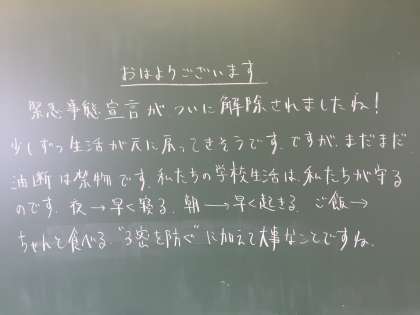 おはようございます
緊急事態宣言がついに解除されましたね!
少しずつ生活が元に戻ってきそうです。ですが、まだまだ
油断は禁物です。私たちの学校生活は、私たちが守る
のです。夜→早く寝る。朝→早く起きる。ご飯→
ちゃんと食べる。"3密を防ぐ"に加えて大事なことですね。